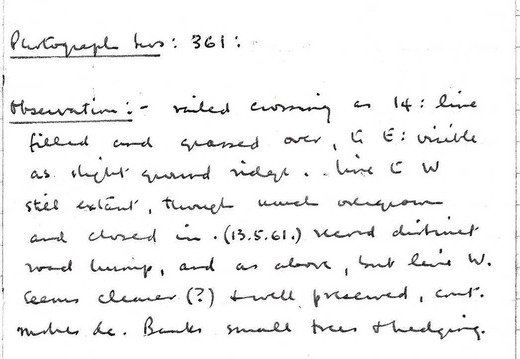 Photograph Nos: 361:
Observation:- railed crossing as 14: line
filled and grassed over, to E: visible
as slight ground ridge. line to W
still extant, though much overgrown
and closed in. (13.5.61.) record distinct
road hump, and as above, but line W.
seems clearer (?) & well preserved, cont.
Banks small trees & hedging.